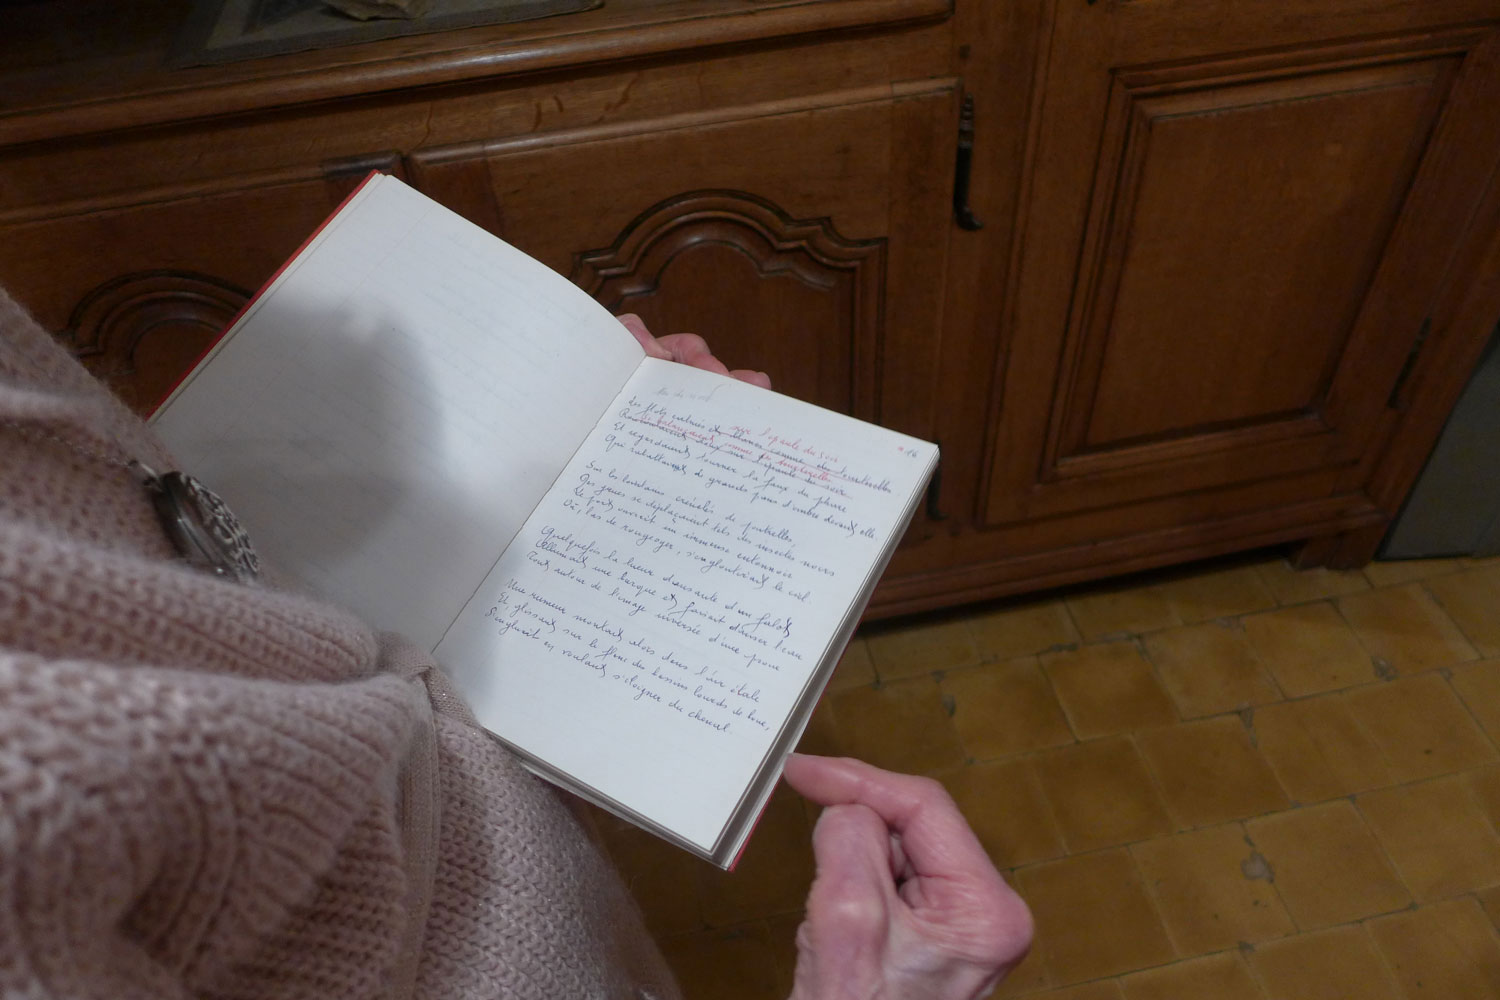 16
Les flots calmés et blancs comme des tourterelles
sur l'épaule du soir
Se balançaient comme des
Et regardaient tourner la faux du phare
Qui rabattait de grands pans d'ombre devant elle.
Sur les lointains crénelés de poutrelles,
Des grues se déplaçaient tels des insectes noirs
Le port ouvrait un immense entonnoir
Où, las de rougeoyer, s'engloutissait le ciel.
Quelquefois la lueur dansante d'un falot
Allumait une barque et faisait danser l'eau
Tout autour de l'image inversée d'une proue
Une rumeur montait alors dans l'air étale
Et glissant sur le flanc des bassins lourds de boue,
S'engluait en voulant s'éloigner du chenal.